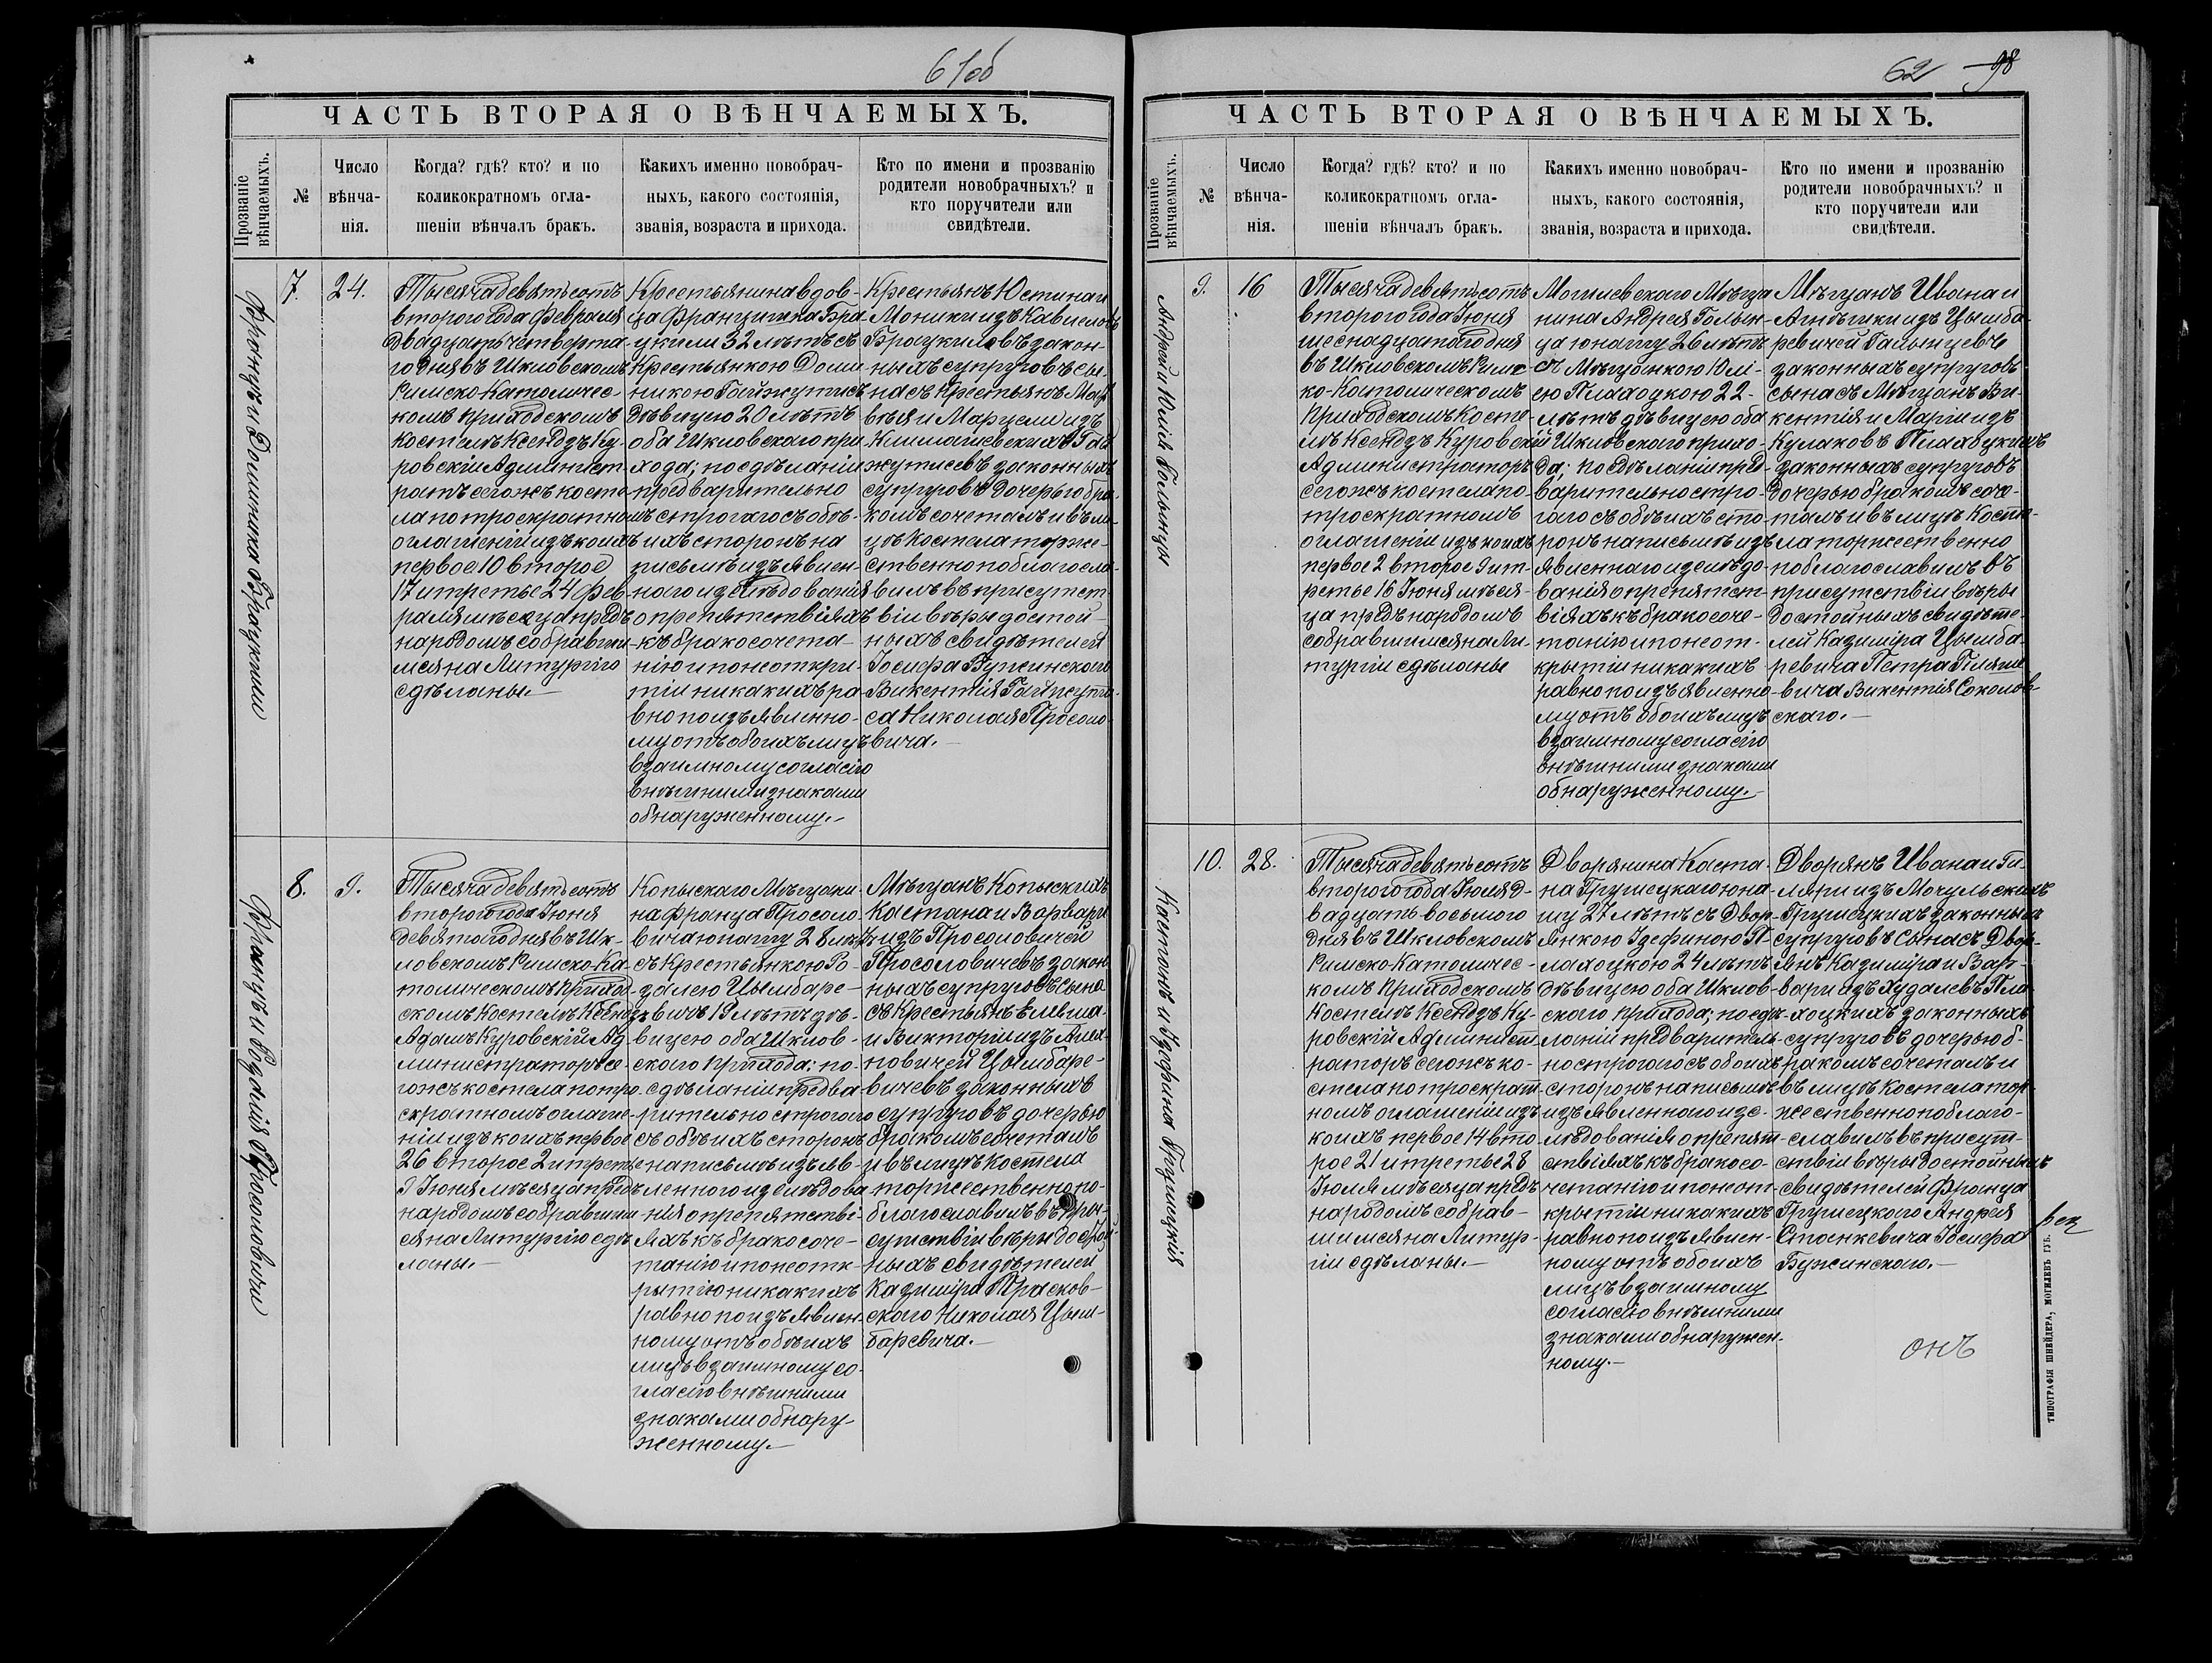 61об
ЧАСТЬ ВТОРАЯ О ВѢНЧАЕМЫХЪ.
Прозваніе вѣнчаемыхъ.
№
Число вѣнча-нія.
Когда? гдѣ? кто? и по
коликократномъ огла-
шеніи вѣнчалъ бракъ.
Какихъ именно новобрач-
ныхъ, какого состоянія,
званія, возраста и прихода.
Кто по имени и прозванію
родители новобрачныхъ? и
кто поручители или
свидѣтели.
Францъ и Доминика Брацкими
7.
24.
Тысяча девятьсотъ
второго года Февраля
двадцать четверта-
го дня въ Шкловскомъ
Римско-Католичес-
комъ приходскомъ
костелѣ Ксендзъ Ку-
ровскій Админист-
раторъ сегожъ косте-
ла по троекратномъ
оглашеніи изъ коихъ
первое 10 второе
17 и третье 24 Фев-
раля мѣсяца предъ
народомъ собравши-
мся на Литургію
сдѣланы.
Крестьянина вдов-
ца Франциска Бра-
цкими 32 лѣтъ съ
Крестьянкою Доми-
никою Гайжутисъ
дѣвицею 20 лѣтъ
оба Шкловскаго при-
хода; по сдѣланіи
предварительно
строгаго съ обѣ-
ихъ сторонъ на
письмѣ изъявлен-
наго изслѣдованія
о препятствіяхъ
къ бракосочета-
нію и по неоткры-
тіи никакихъ ра-
вно по изъявленно-
му отъ обоихъ лицъ
взаимному согласію
внѣшними знаками
обнаруженному.
Крестьянъ Юстина и
Моники изъ
Брацкимовъ закон-
ныхъ супруговъ сы-
на съ Крестьянъ Мат-
вѣя и Марцели изъ
Климашевскихъ Гай-
жутисевъ законныхъ
супруговъ дочерью бра-
комъ сочеталъ и въ ли-
цѣ Костела торже-
ственно поблагосла-
вилъ въ присутст-
віи вѣры достой-
ныхъ свидѣтелей
Іосифа Бужинскаго
Викентія Гайжути-
са Николая Просоло-
вича.
Францъ и Розалія Просоловичи
8.
9.
Тысяча девятьсотъ
второго года Іюня
девятого дня въ Шк-
ловскомъ Римско-Ка-
толическомъ Приход-
скомъ Костелѣ Ксендзъ
Адамъ Куровскій Ад-
министраторъ се-
гожъ костела по тро-
екратномъ оглаше-
ніи изъ коихъ первое
26 второе 2 и третье
9 Іюня мѣсяца предъ
народомъ собравшим-
ся на Литургію сдѣ-
ланы.
Копыскаго Мѣщани-
на Франца Просоло-
вича юношу 28 лѣтъ
съ Крестьянкою Ро-
залею Цымбаре-
вичъ 19 лѣтъ дѣ-
вицею оба Шклов-
скаго прихода; по
сдѣланіи предва-
рительно строгаго
съ обѣихъ сторонъ
на письмѣ изъяв-
леннаго изслѣдова-
нія о препятстві-
яхъ къ бракосоче-
танію и по неотк-
рытію никакихъ
равно по изъявлен-
ному отъ обѣихъ
лицъ взаимному со-
гласію внѣшними
знаками обнару-
женному.
Мѣщанъ Копыскихъ
Каетана и Варвары
изъ Просоловичей
Просоловичевъ закон-
ныхъ супруговъ сына
съ Крестьянъ
и Викторіи изъ
Цымбаре-
вичевъ законныхъ
супруговъ дочерью
бракомъ сочеталъ
и въ лицѣ костела
торжественно по-
благословилъ въ при-
сутствіи вѣры достой-
ныхъ свидѣтелей
Казиміра
Николая Цым-
баревича.
62
98
ЧАСТЬ ВТОРАЯ О ВѢНЧАЕМЫХЪ.
Прозваніе вѣнчаемыхъ.
№
Число вѣнча-нія.
Когда? гдѣ? кто? и по
коликократномъ огла-
шеніи вѣнчалъ бракъ.
Какихъ именно новобрач-
ныхъ, какого состоянія,
званія, возраста и прихода.
Кто по имени и прозванію
родители новобрачныхъ? и
кто поручители или
свидѣтели.
Андрей и Юлія Голынцы
9.
16
Тысяча девятьсотъ
второго года Іюня
шеснадцатого дня
въ Шкловскомъ Римс-
ко-Католическомъ
Приходскомъ Косте-
лѣ Ксендзъ Куровскій
Администраторъ
сегожъ костела по
троекратномъ
оглашеніи изъ коихъ
первое 2 второе 9 и т-
ретье 16 Іюня мѣся-
ца предъ народомъ
собравшимся на Ли-
тургіи сдѣланы
Могилевскаго Мѣща
нина Андрея Голын-
ца юношу 26 лѣтъ
съ Мѣщанкою Юлі-
ею Плахоцкою 22-
лѣтъ дѣвицею оба
Шкловскаго прихо-
да; по сдѣланіи пред-
варительно стро-
гаго съ обѣихъ сто-
ронъ на письмѣ изъ
явленнаго изслѣдо-
ванія о препятст-
віяхъ къ бракосоче-
танію и по неот-
крытіи никакихъ
равно по изъявленно-
му отъ обоихъ лицъ
взаимному согласію
внѣшними знаками
обнаруженному.
Мѣщанъ Ивана и
Агнѣшки изъ Цымба-
ревичей Галынцевъ
законныхъ супруговъ
сына съ Мѣщанъ Ви-
кентія и Маріи изъ
Кулаковъ Плахоцкихъ
законныхъ супруговъ
дочерью бракомъ соче-
талъ и въ лицѣ Косте-
ла торжественно
поблагославилъ въ
присутствіи вѣры
достойныхъ свидѣте-
лей Казиміра Цымба-
ревича Петра
Викентія Соколов-
скаго.
Каетанъ и Іозефина Грушецкія
10.
28.
Тысяча девятьсотъ
второго года Іюля д-
вадцать восьмого
дня въ Шкловскомъ
Римско-Католичес-
комъ Приходскомъ
Костелѣ Ксендзъ Ку-
ровскій Админист-
раторъ сегожъ ко-
стела по троекрат-
номъ оглашеніи изъ
коихъ первое 14 вто-
рое 21 и третье 28
Іюля мѣсяца предъ
народомъ собрав-
шимся на Литур-
гіи сдѣланы.
Дворянина Каета-
на Грушецкаго юно-
шу 27 лѣтъ съ Двор-
янкою Іозефиною П-
лахоцкою 24 лѣтъ
дѣвицею оба Шклов-
скаго прихода; по сдѣ-
ланіи предваритель-
но строгаго съ обоихъ
сторонъ на письмѣ
изъявленнаго изс-
лѣдованія о препят-
ствіяхъ къ бракосо-
четанію и по неот-
крытіи никакихъ
равно по изъявлен-
ному отъ обоихъ
лицъ взаимному
согласію внѣшними
знаками обнаружен-
ному.
Дворянъ Ивана и Ги-
ляріи изъ Мочульскихъ
Грушецкихъ законныхъ
супруговъ сына съ Двор-
янъ Казиміра и Вар-
вары изъ Пла-
хоцкихъ законныхъ
супруговъ дочерью б-
ракомъ сочеталъ и
въ лицѣ Костела тор-
жественно поблаго-
славилъ въ присут-
ствіи вѣры достойныхъ
свидѣтелей Франца
Грушецкаго Андрея
Станкевича Іосифа
Бужинскаго.
онъ
ТИПОГРАФІЯ ШНЕЙДЕРА, МОГИЛЕВЪ ГУБ.